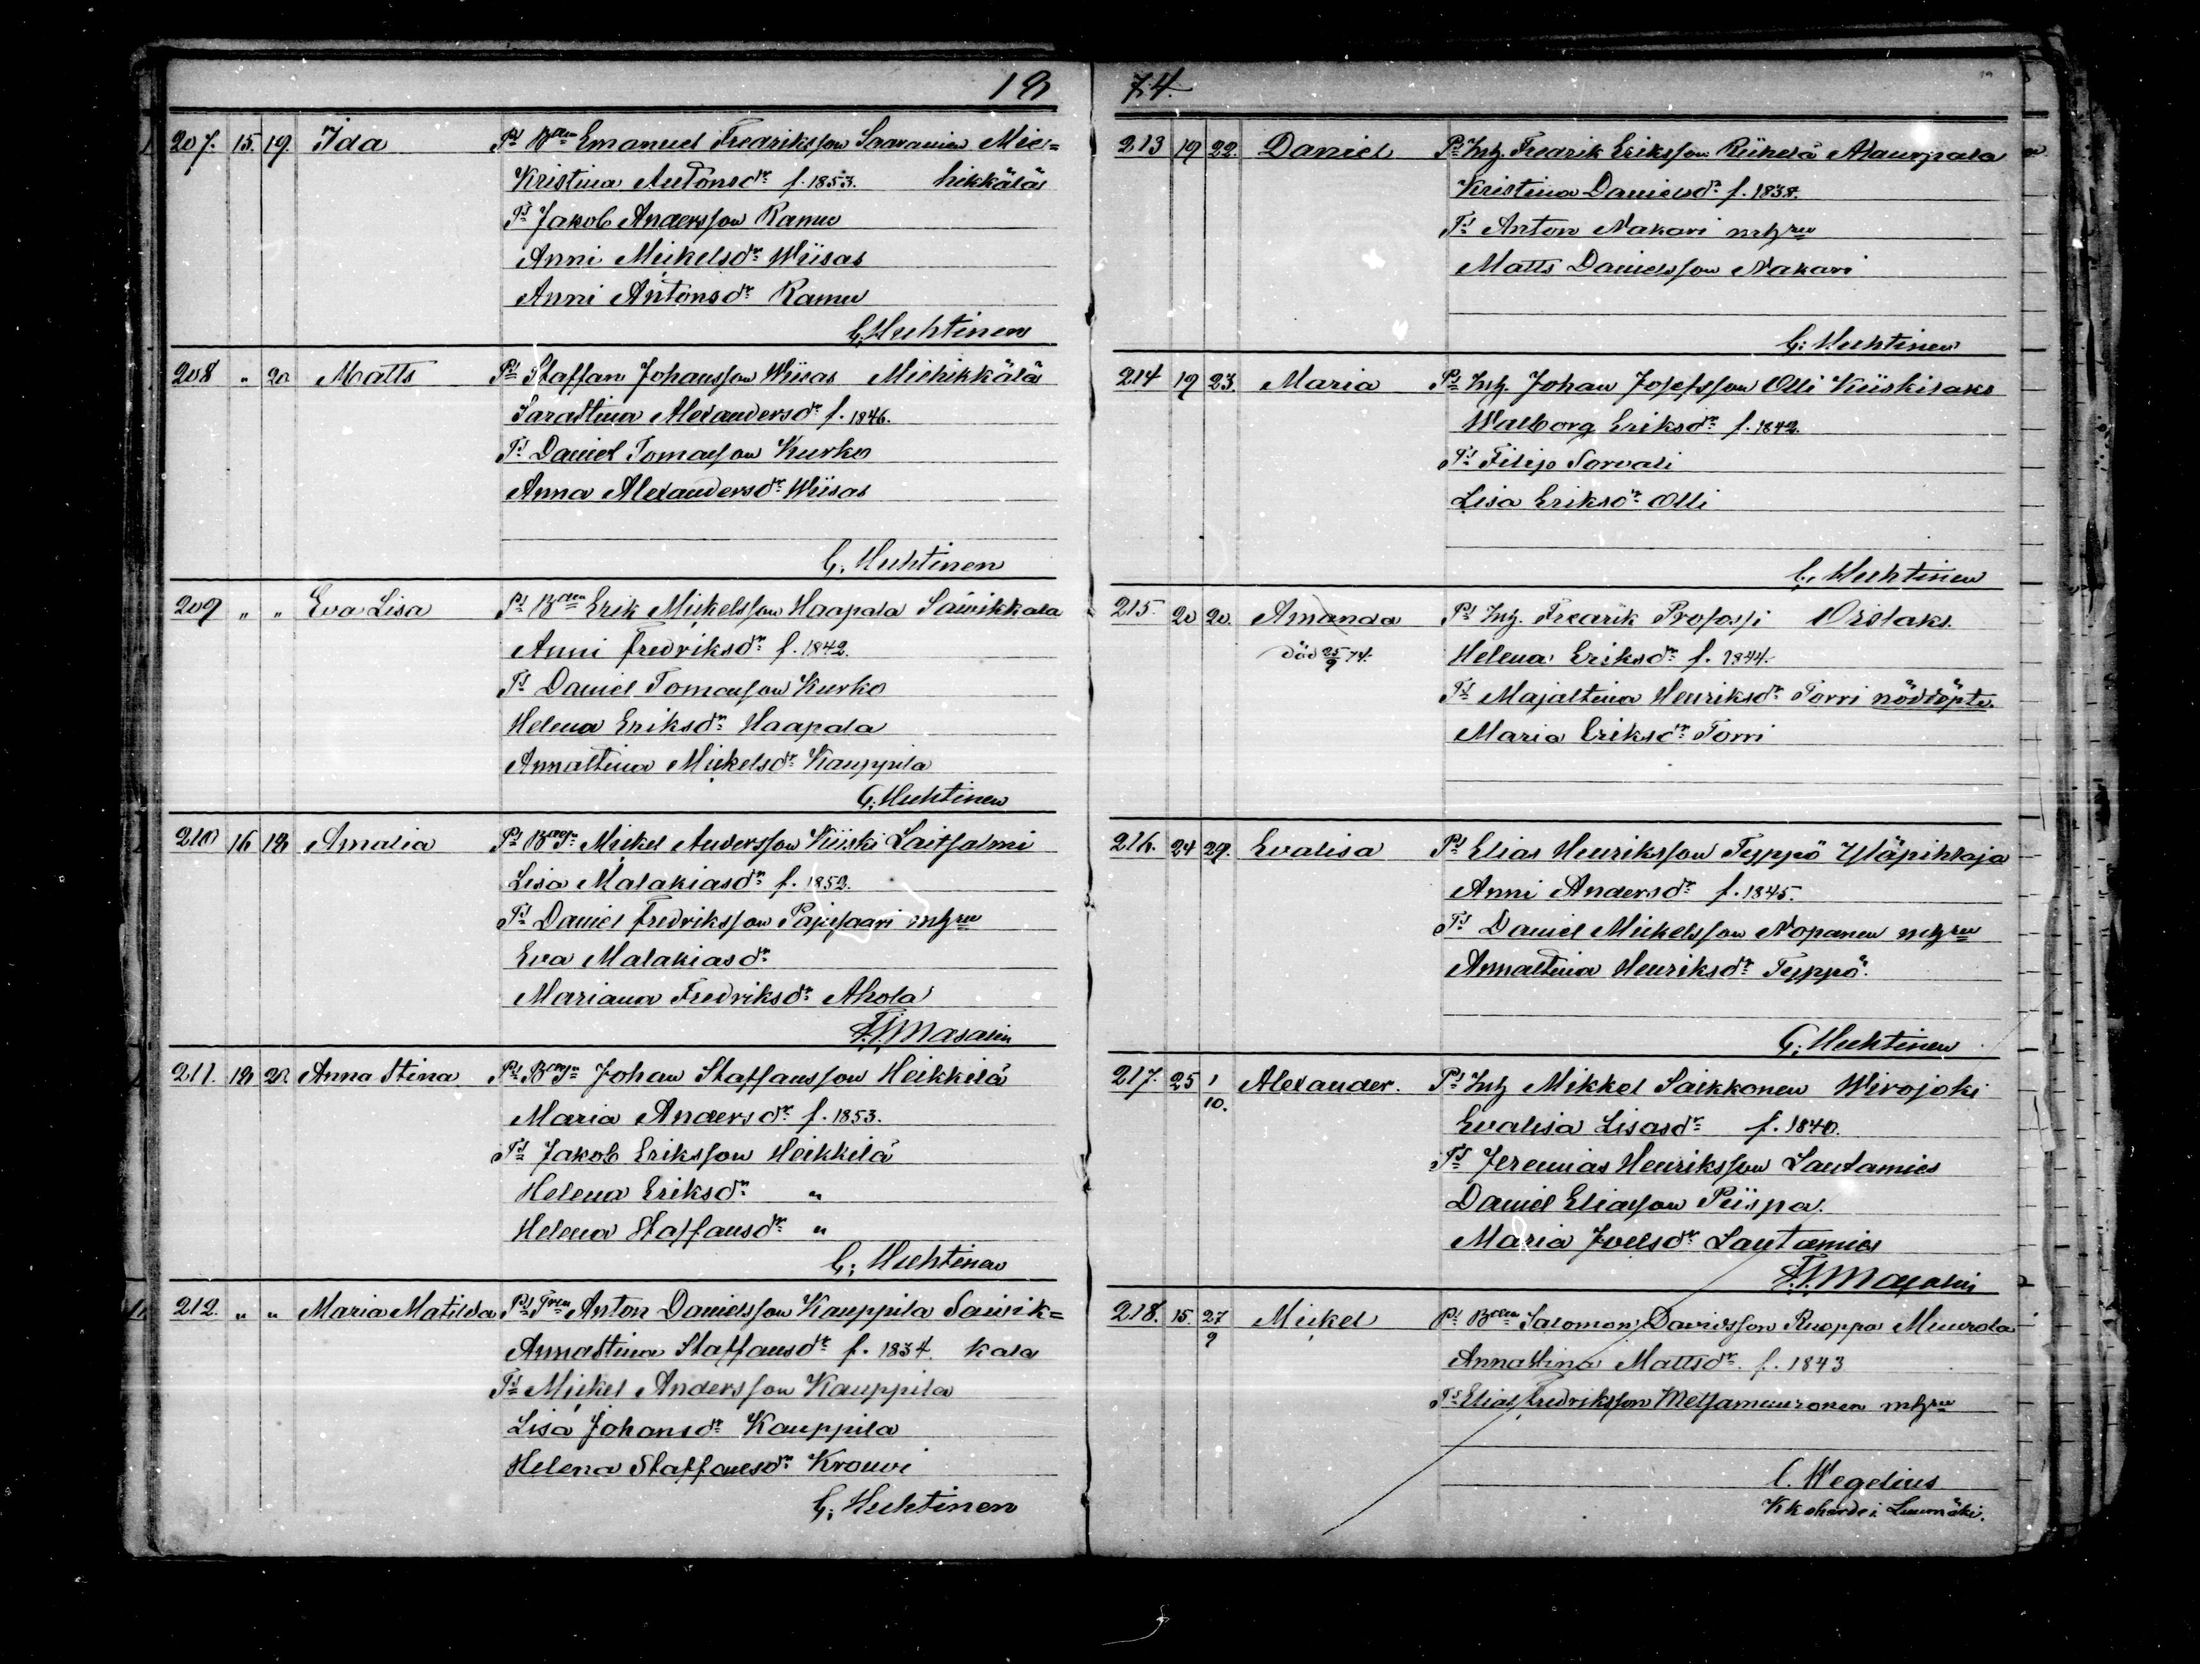 18
207. 15. 19. Ida Prs Bden Emanuel Fredriksson Saavamien Mie=
Kristina Antonsdr f. 1853. hikkälä
Ts Jakob Andersson Ramu
Anni Mickelsdr Wiisas
Anni Antonsdr Ramu
G. Huhtinen
208 " 20 Matts Prs Staffan Johansson Wiisas Miehikkälä
Sarastina Alexandersdr f. 1846.
Ts Daniel Tomasson Kurko
Anna Alexandersdr Wiisas
G. Huhtinen
209 " " Eva Lisa Prs Bden Erik Mickelsson Haapala Säivikkala
Anni Fredriksdr f. 1842.
Ts Daniel Tomasson Kurko
Helena Eriksdr Haapala
Annastina Mickelsdr Kauppila
G. Huhtinen
210 16 18 Amalia Prs Mickel Andersson Kiiski Laitsalmi
Lisa Malakiasdr f. 1852.
Ts Daniel Fredriksson Pajusaari mhru
Eva Malakiasdr
Mariana Fredriksdr Ahola
F. J. Masalin
211. 18 20. Anna Stina Prs Johan Staffansson Heikkilä
Maria Andersdr f. 1853.
Ts Jakob Eriksson Heikkilä
Helena Eriksdr "
Helena Staffansdr "
G. Huhtinen
212. " " Maria Matilda Prs Anton Danielsson Kauppila Säivik=
Annastina Staffansdr f. 1834. kala
Ts Mickel Andersson Kauppila
Lisa Johansdr Kauppila
Helena Staffansdr Krouvi
G. Huhtinen
74.
213 19 22. Daniel Prs Inh. Fredrik Eriksson Riihelä Alaurpala
Kristina Danielsdr f. 1838.
Ts Anton Nakari mhru
Matts Danielsson Nakari
G. Huhtinen
214 19 23. Maria Prs Inh. Johan Josefsson Olli Kiiskilaks
Walborg Eriksdr f. 1842.
Ts Filip Sorvali
Lisa Eriksdr Olli
G. Huhtinen
215. 20 20. Amanda Prs Inh. Fredrik Profossi Orslaks.
död 25/9 74. Helena Eriksdr f. 1844.
Ts Majastina Henriksdr Torri nöddöpte.
Maria Eriksdr Torri
216. 24 29. Evalisa Prs Elias Henriksson Teppo Yläpihlaja
Anni Andersdr f. 1845.
Ts Daniel Mickelsson Nopanen mhru
Annastina Henriksdr Teppo
G. Huhtinen
217. 25 1/10. Alexander. Prs Inh Mikkel Saikkonen Wirojoki
Evalisa Lisasdr f. 1840.
Ts Jeremias Henriksson Lautamies
Daniel Eliasson Piispa.
Maria Joelsdr Lautamies
F. J. Masalin
218. 15. 27/9 Mickel Prs Bden Salomon Davidsson Ruoppa Muurola
Annastina Mattsdr. f. 1843
Ts Elias Fredriksson Metsämuuronen mhru
C. Wegelius
Kkoherde i Luumäki.